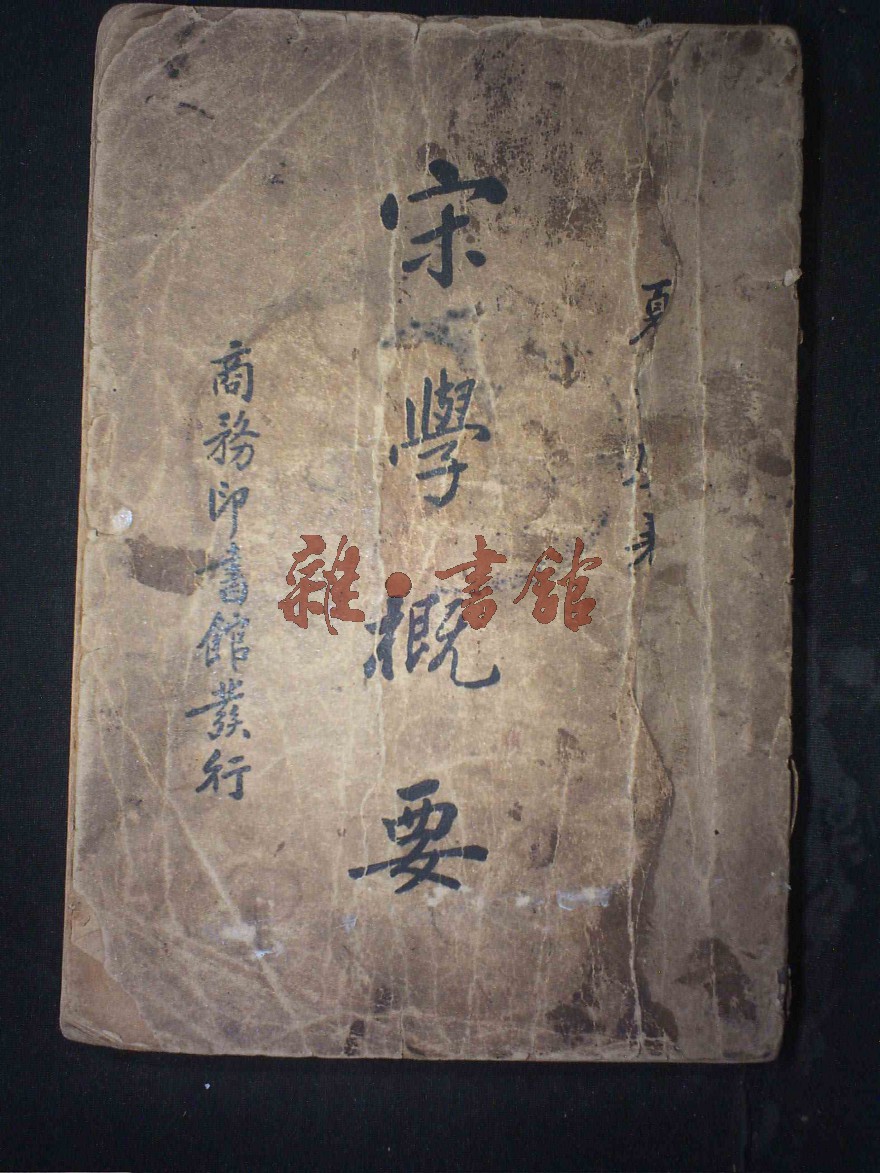 夏
宋學概要
商務印書館發行
雜·書館